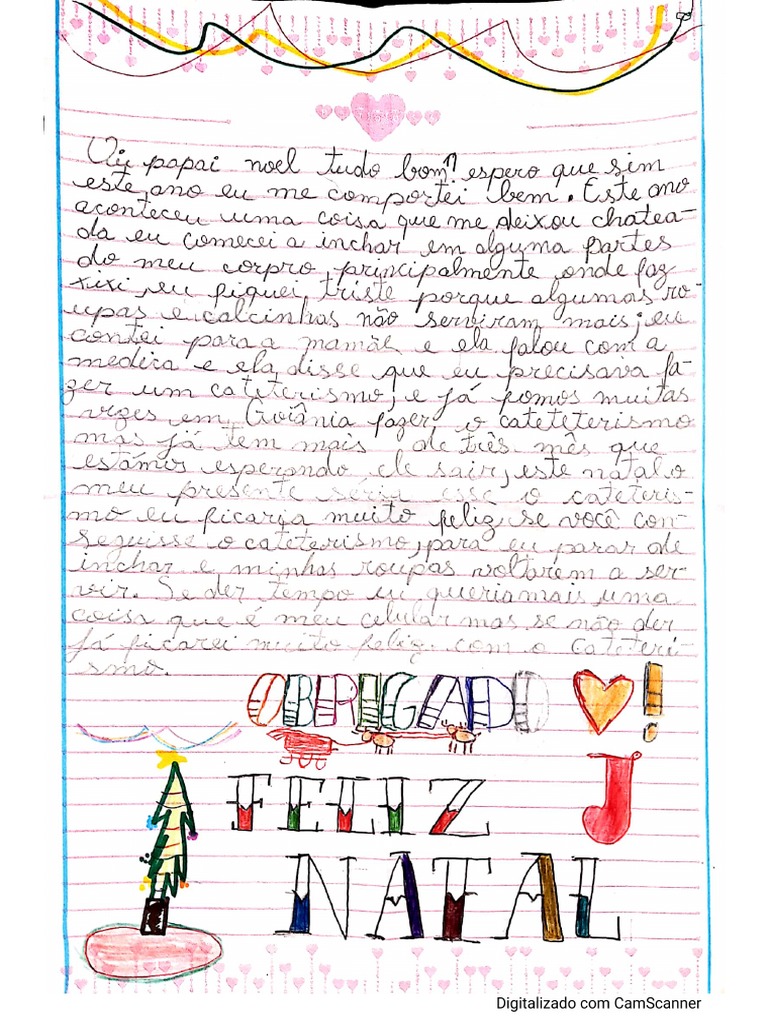 Oii papai noel tudo bom? espero que sim
este ano eu me comportei bem. Este ano
aconteceu uma coisa que me deixou chatea-
da eu comecei a inchar em alguma partes
do meu corpro, principalmente onde faz
xixi, eu fiquei triste porque algumas ro-
upas e calcinhas não serviram mais, eu
contei para a mamãe e ela falou com a
medica e ela disse que eu precisava fa-
zer um cateterismo, e já fomos muitas
vezes em Goiânia fazer o cateteterismo
mas já tem mais de três mês que
estámos esperando ele sair, este natal o
meu presente seria esse o cateteris-
mo eu ficaria muito feliz se você con-
seguisse o cateterismo, para eu parar de
inchar e minhas roupas voltarem a ser-
vir. Se der tempo eu queria mais uma
coisa que é meu celular mas se não der
já ficarei muito feliz com o cateteri-
smo.
OBRIGADO !
FELIZ
NATAL
Digitalizado com CamScanner